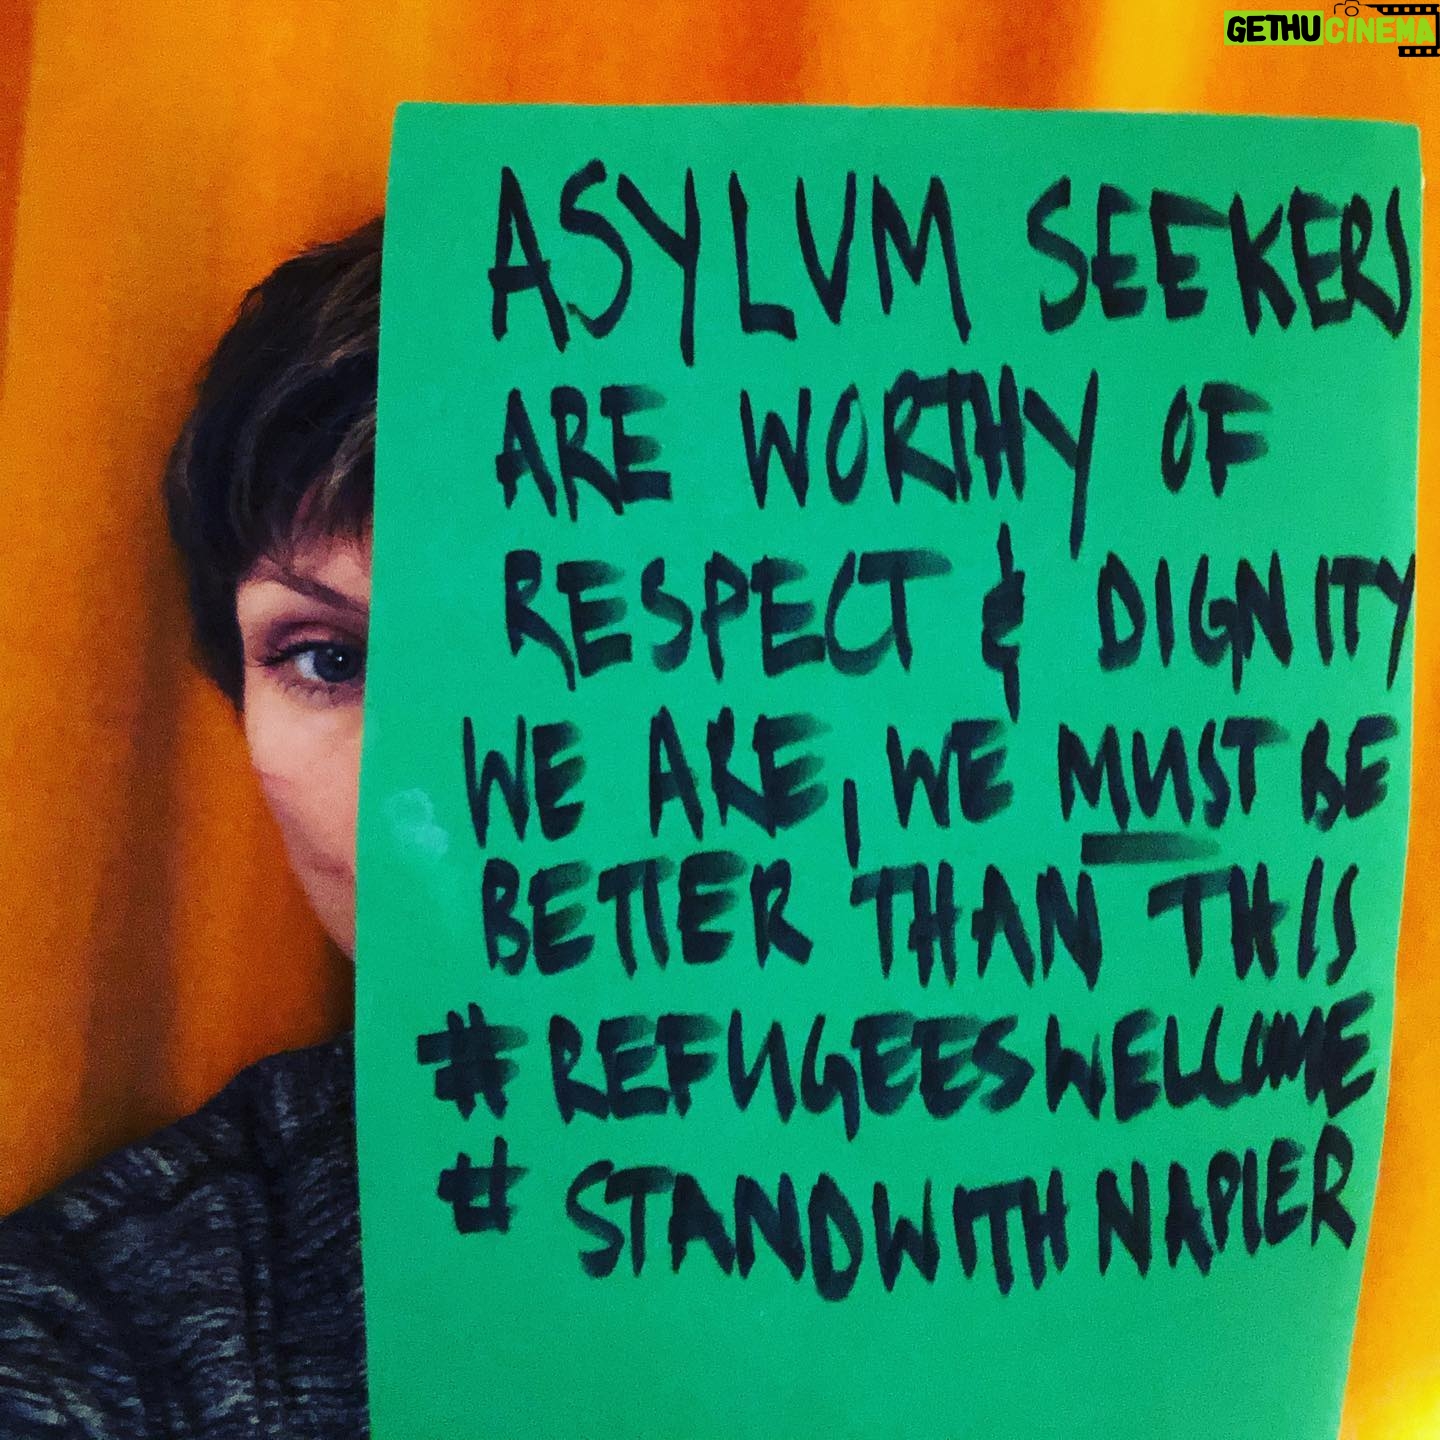 GETHUCINEMA
ASYLUM SEEKERS
ARE WORTHY OF
RESPECT & DIGNITY
WE ARE, WE MUST BE
BETTER THAN THIS
#REFUGEESWELCOME
#STANDWITHNAPIER